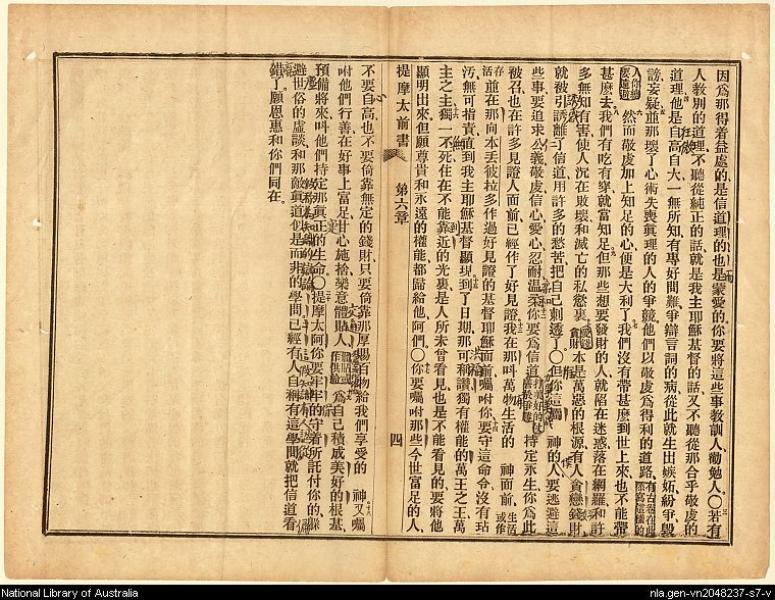 因爲那得着益處的是信道理的也是蒙愛的你要將這些事教訓人勸勉人〇若有
人教別的道理不聽從純正的話就是我主耶穌基督的話又不聽從那合乎敬虔的
道理他是自高自大一無所知有專好問難爭辯言詞的病從此就生出嫉妬紛爭毀
謗妄疑並那壞了心術失喪眞理的人的爭競他們以敬虔爲得利的道路有古卷在此
然而敬虔加上知足的心便是大利了我們沒有帶甚麼到世上來也不能帶
甚麼去我們有吃有穿就當知足但那些想要發財的人就陷在迷惑落在網羅和許
多無知有害使人沉在敗壞和滅亡的私慾裏貪財本是萬惡的根源有人貪戀錢財
就被引誘離了信道用許多的愁苦把自己刺透了〇但你這屬神的人要逃避這
些事要追求公義敬虔信心愛心忍耐溫柔你要爲信道持定永生你爲此
被召也在許多見證人面前已經作了好見證我在那叫萬物生活的神面前生活或作
存活並在那向本丟彼拉多作過好見證的基督耶穌面前囑咐你要守這命令沒有玷
汚無可指責直到我主耶穌基督顯現到了日期那可稱讚獨有權能的萬王之王萬
主之主獨一不死住在不能靠近的光裏是人所未曾看見也是不能看見的要將他
顯明出來但願尊貴和永遠的權能都歸給他阿們〇你要囑咐那些今世富足的人
提摩太前書 第六章 四
不要自高也不要倚靠無定的錢財只要倚靠那厚賜百物給我們享受的神又囑
咐他們行善在好事上富足甘心施捨樂意體貼人爲自己積成美好的根基
預備將來叫他們持定那眞正的生命〇提摩太阿你要牢牢的守着所託付你的
避世俗的虛談和那敵眞道似是而非的學問已經有人自稱有這學問就把信道看
錯了願恩惠和你們同在
National Library of Australia
nla.gen-vn2048237-s7-v